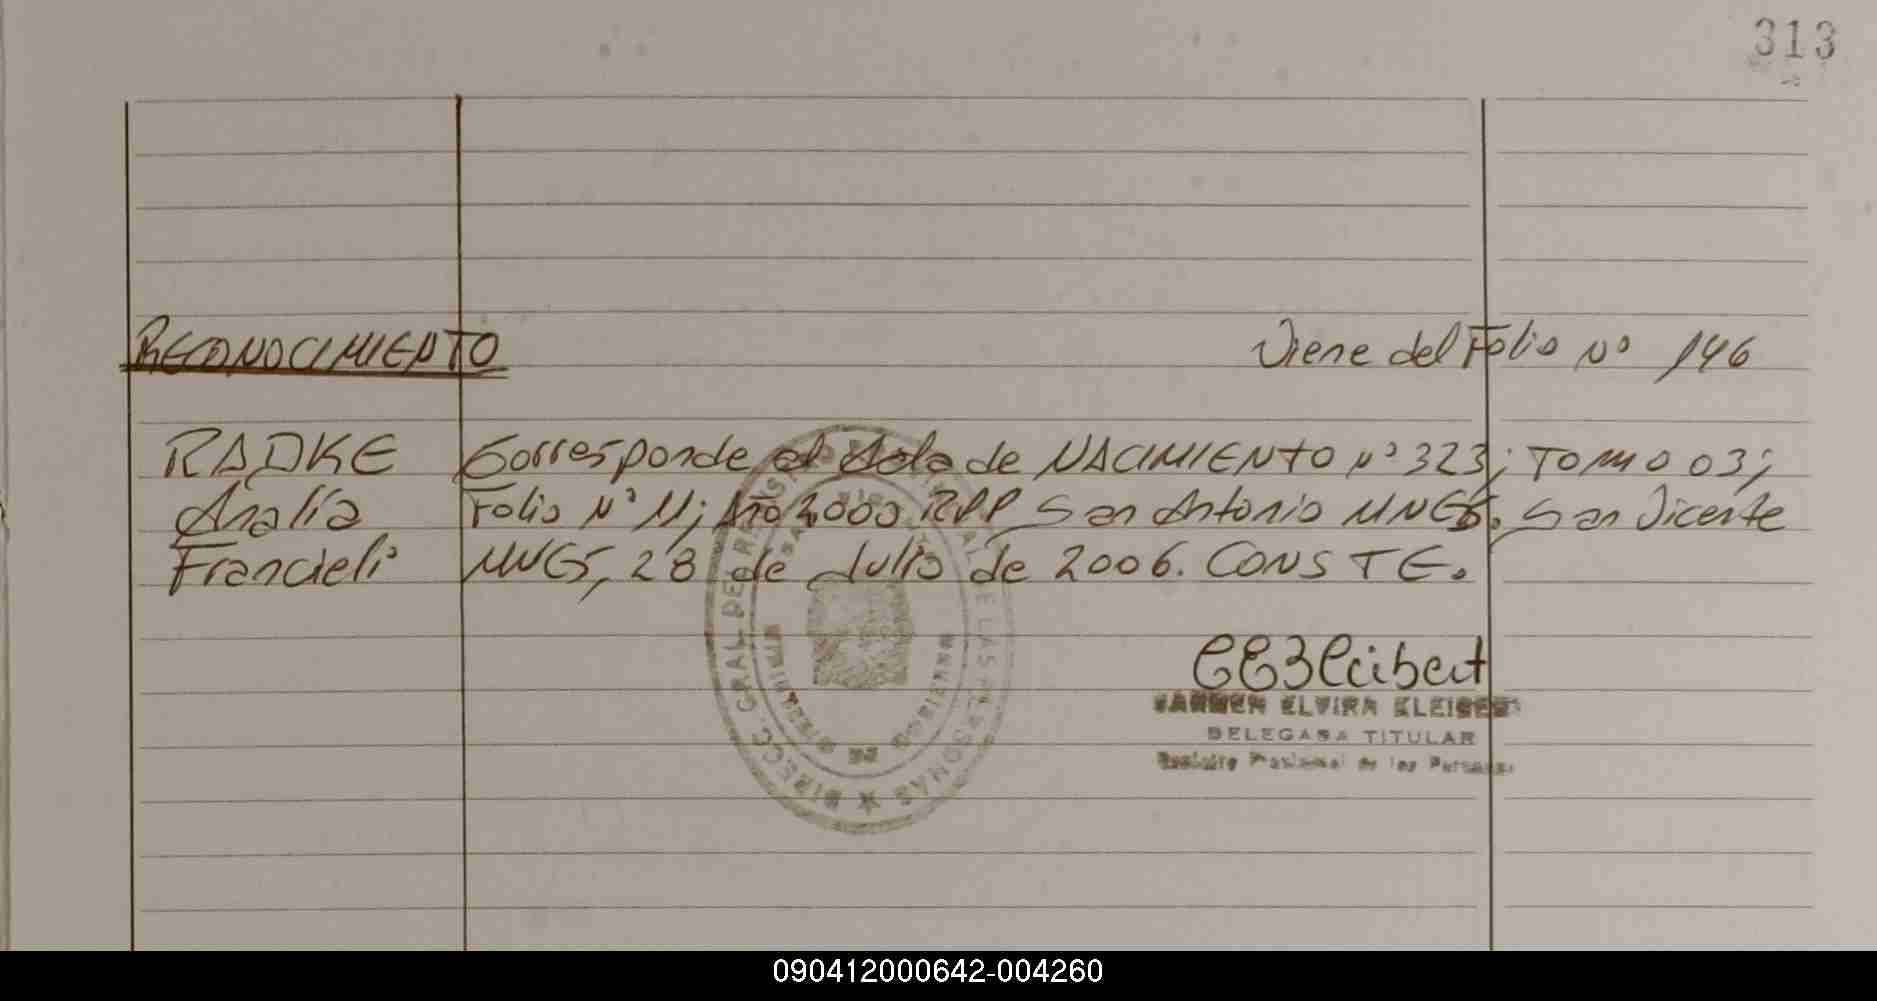 313
RECONOCIMIENTO Viene del Folio Nº 146
RADKE Corresponde al Acta de NACIMIENTO Nº 323; TOMO 03;
Analía Folio Nº 11; Año 2000 RPP San Antonio MNES. San Vicente
Francieli MNES, 28 de Julio de 2006. CONSTE.
CARMEN ELVIRA KLEIBERT
DELEGADA TITULAR
Registro Provincial de las Personas
DIRECC. GRAL. DEL REGISTRO PROVINCIAL DE LAS PERSONAS
090412000642-004260